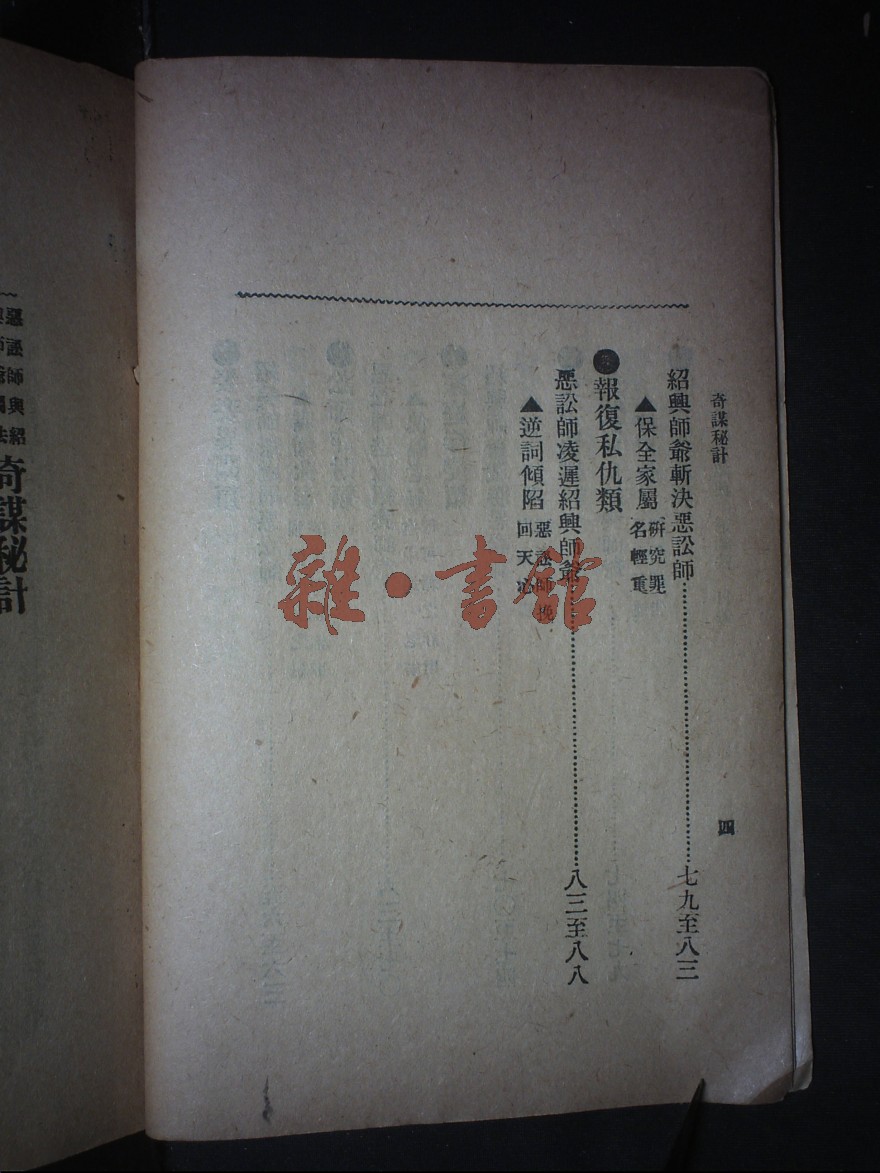 奇謀秘計
四
紹興師爺斬決惡訟師……七九至八三
▲保全家屬 研究罪名輕重
報復私仇類
惡訟師凌遲紹興師爺……八三至八八
▲逆詞傾陷 惡訟師挽回天心
雜·書館
惡訟師與紹
奇謀秘計